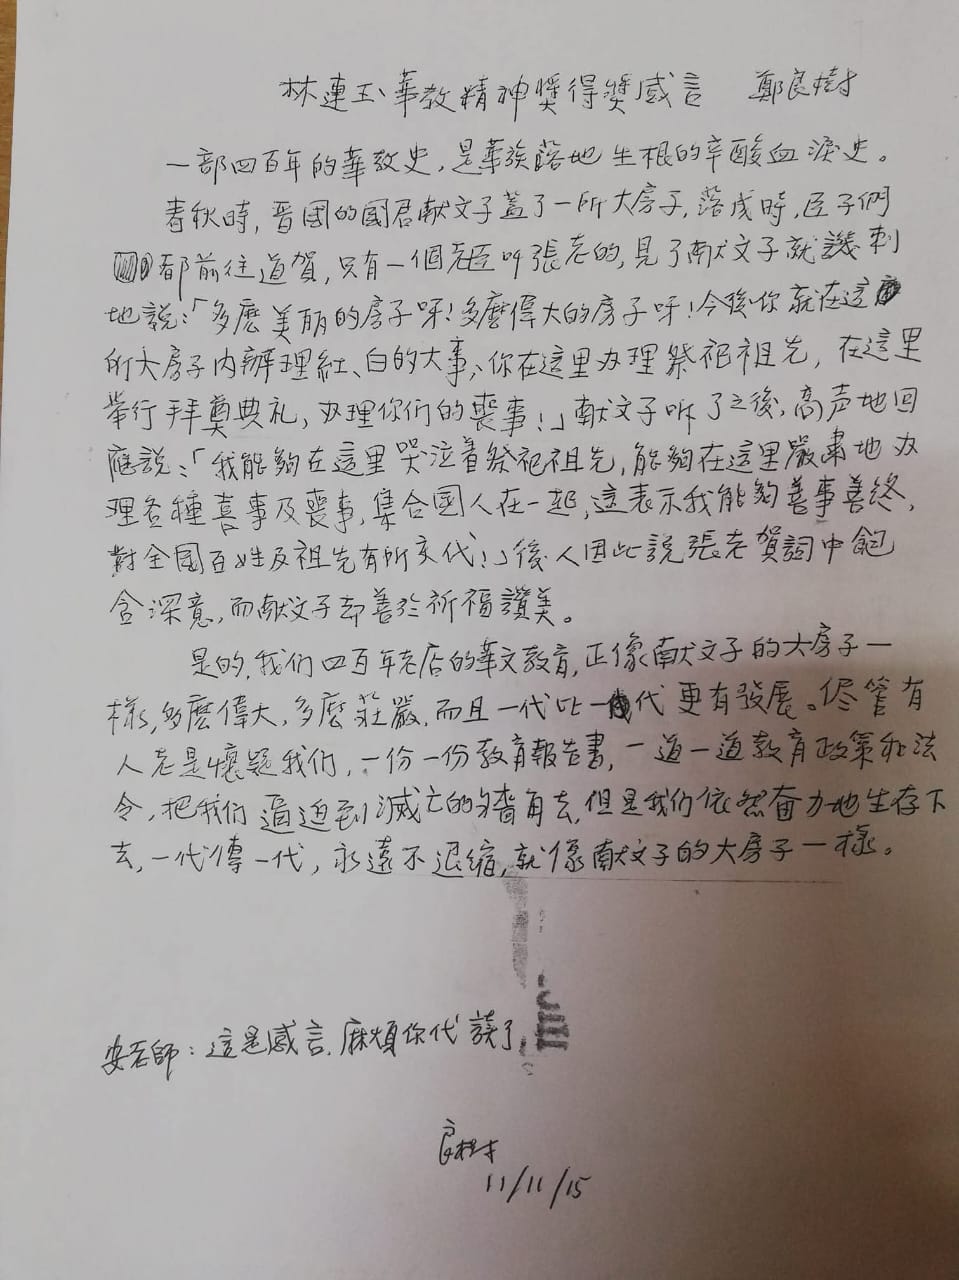 林連玉華教精神獎得獎感言 鄭良樹
一部四百年的華教史，是華族落地生根的辛酸血淚史。
春秋時，晉國的國君献文子蓋了一所大房子，落成時，臣子們
都前往道賀，只有一個老臣叫張老的，見了献文子就譏刺
地說：「多麽美丽的房子呀！多麽偉大的房子呀！今後你就在這
所大房子内辦理紅、白的大事、你在這里办理祭祀祖先，在這里
举行拜奠典礼，办理你们的喪事！」献文子听了之後，高声地回
應説：「我能夠在這里哭泣着祭祀祖先，能夠在這里嚴肅地办
理各種喜事及喪事，集合國人在一起，這表示我能夠善事善終，
對全國百姓及祖先有所交代！」後人因此説張老賀詞中飽
含深意，而献文子却善於祈福讚美。
是的，我们四百年老店的華文教育，正像献文子的大房子一
樣，多麽偉大，多麽莊嚴，而且一代比一代更有發展。侭管有
人老是懷疑我们，一份一份教育報告書，一道一道教育政策和法
令，把我们逼迫到滅亡的牆角去，但是我们依然奮力地生存下
去，一代傳一代，永遠不退缩，就像献文子的大房子一樣。
安老師：這是感言，麻煩你代讀了，
良樹
11/11/15